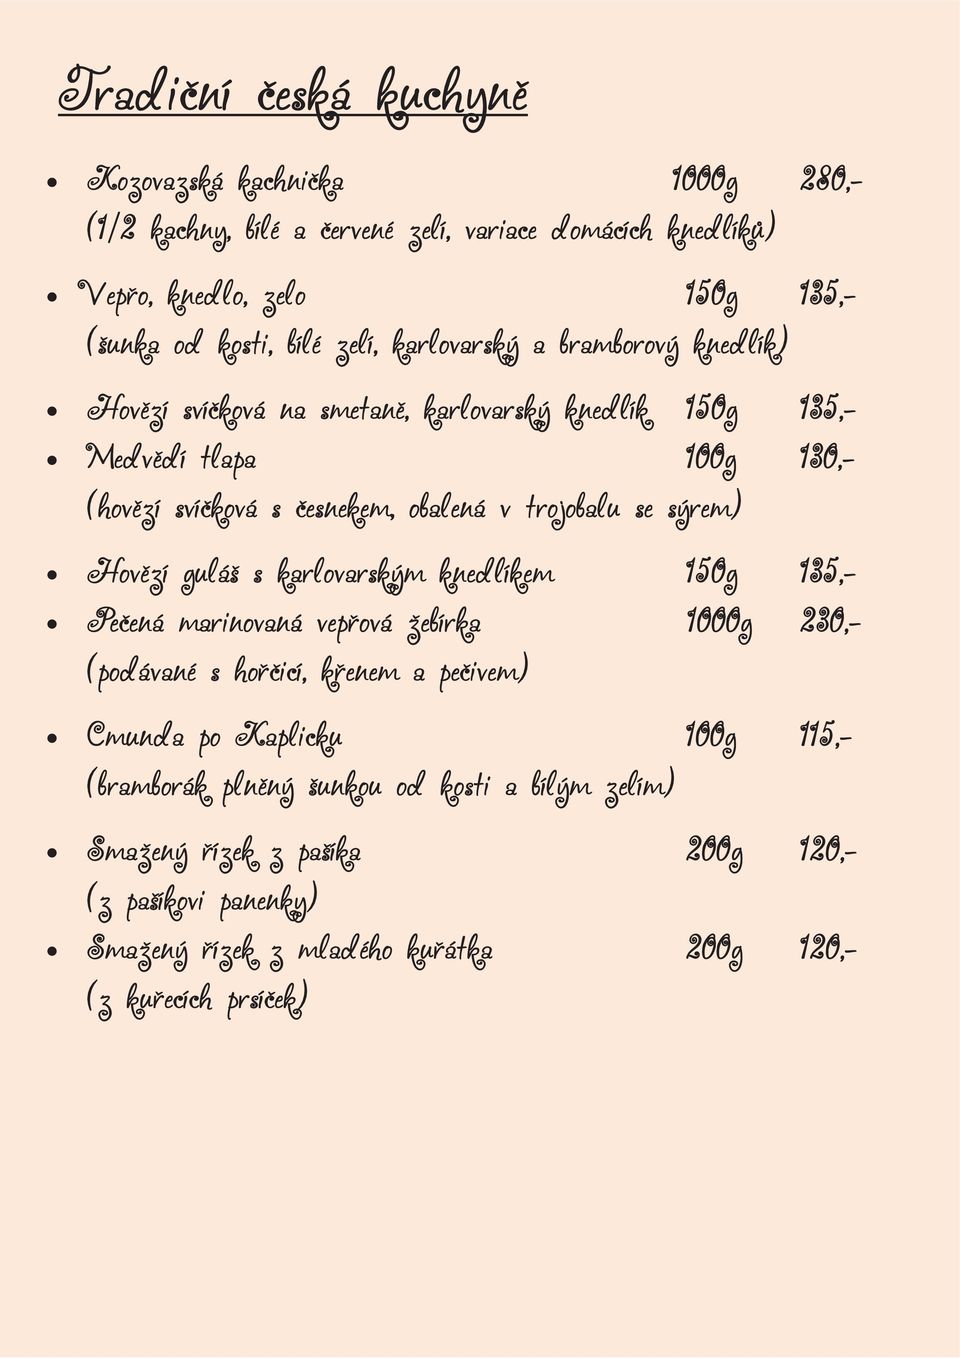 Tradiční česká kuchyně
• Kozovazská kachnička 1000g 280,-
(1/2 kachny, bílé a červené zelí, variace domácích knedlíků)
• Vepřo, knedlo, zelo 150g 135,-
(šunka od kosti, bílé zelí, karlovarský a bramborový knedlík)
• Hovězí svíčková na smetaně, karlovarský knedlík 150g 135,-
• Medvědí tlapa 100g 130,-
(hovězí svíčková s česnekem, obalená v trojobalu se sýrem)
• Hovězí guláš s karlovarským knedlíkem 150g 135,-
• Pečená marinovaná vepřová žebírka 1000g 230,-
(podávané s hořčicí, křenem a pečivem)
• Cmunda po Kaplicku 100g 115,-
(bramborák plněný šunkou od kosti a bílým zelím)
• Smažený řízek z pašíka 200g 120,-
(z pašíkovi panenky)
• Smažený řízek z mladého kuřátka 200g 120,-
(z kuřecích prsíček)